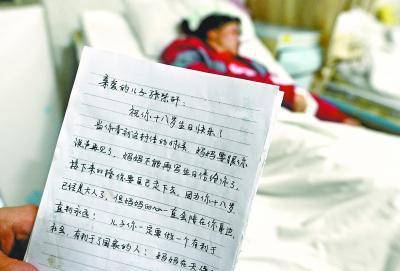 亲爱的儿子张
祝你十八岁生日快乐!
当你看到这封信的时候,妈妈要跟你
说声再见了,妈妈不能再写生日信给你了,
接下来的路你要自己走下去。因为你十八岁
已经是大人了。但妈妈的心一直会陪在你身边,
直到永远!儿子你一定要做一个有利于
社会,有利于国家的人!妈妈在天